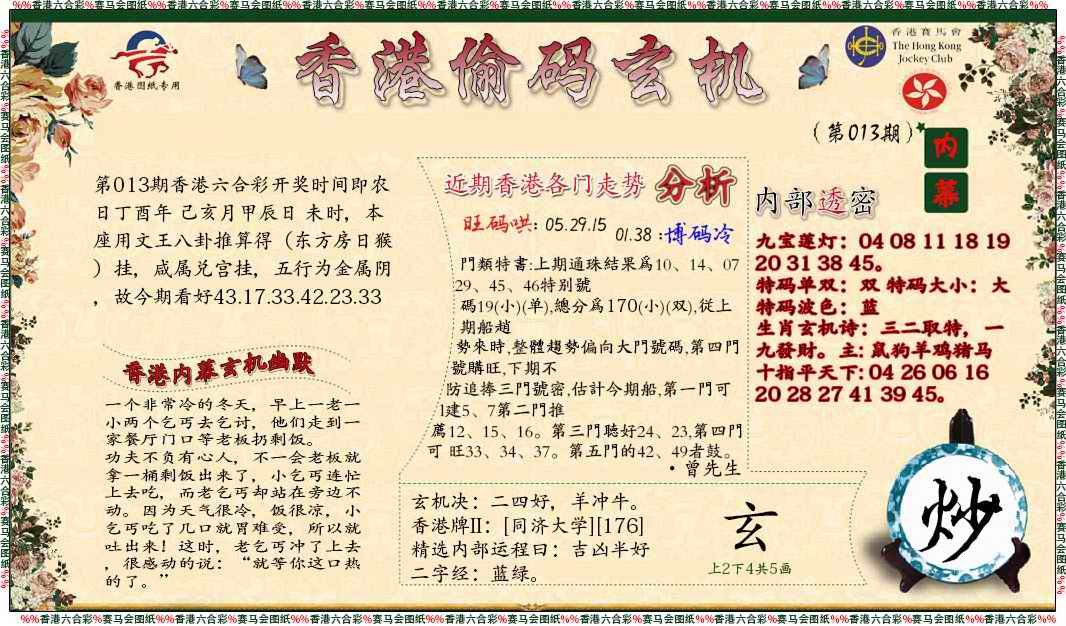 %%香港六合彩%赛马会图纸%%香港六合彩%赛马会图纸%%香港六合彩%赛马会图纸%%香港六合彩%赛马会图纸%%香港六合彩%赛马会图纸%%香港六合彩%赛马会图纸%%香港六合彩%%
香港图纸专用
香港偷码玄机
香港賽馬會
The Hong Kong
Jockey Club
(第013期)
内幕
第013期香港六合彩开奖时间即农
日丁酉年 己亥月甲辰日 未时，本
座用文王八卦推算得（东方房日猴
）挂，咸属兑宫挂，五行为金属阴
，故今期看好43.17.33.42.23.33
香港内幕玄机幽默
一个非常冷的冬天，早上一老一
小两个乞丐去乞讨，他们走到一
家餐厅门口等老板扔剩饭。
功夫不负有心人，不一会老板就
拿一桶剩饭出来了，小乞丐连忙
上去吃，而老乞丐却站在旁边不
动。因为天气很冷，饭很凉，小
乞丐吃了几口就胃难受，所以就
吐出来！这时，老乞丐冲了上去
，很感动的说：“就等你这口热
的了。”
近期香港各门走势 分析
旺码哄: 05.29.15
01.38 :博码冷
門類特書:上期通珠結果爲10、14、07
29、45、46特别號
碼19(小)(单),總分爲170(小)(双),從上
期船趙
勢來時,整體趨勢偏向大門號碼,第四門
號購旺,下期不
防追捧三門號密,估计今期船,第一門可
1建5、7第二門推
薦12、15、16。第三門聽好24、23,第四門
可 旺33、34、37。第五門的42、49者鼓。
·曾先生
内部透密
九宝莲灯：04 08 11 18 19
20 31 38 45。
特码单双：双 特码大小：大
特码波色：蓝
生肖玄机诗：三二取特，一
九發財。主: 鼠狗羊鸡猪马
十指平天下: 04 26 06 16
20 28 27 41 39 45。
玄机决：二四好，羊冲牛。
香港牌II：[同济大学][176]
精选内部运程曰：吉凶半好
二字经：蓝绿。
玄
上2下4共5画
炒
%%香港六合彩%赛马会图纸%%香港六合彩%赛马会图纸%%香港六合彩%赛马会图纸%%香港六合彩%赛马会图纸%%香港六合彩%赛马会图纸%%香港六合彩%赛马会图纸%%香港六合彩%%